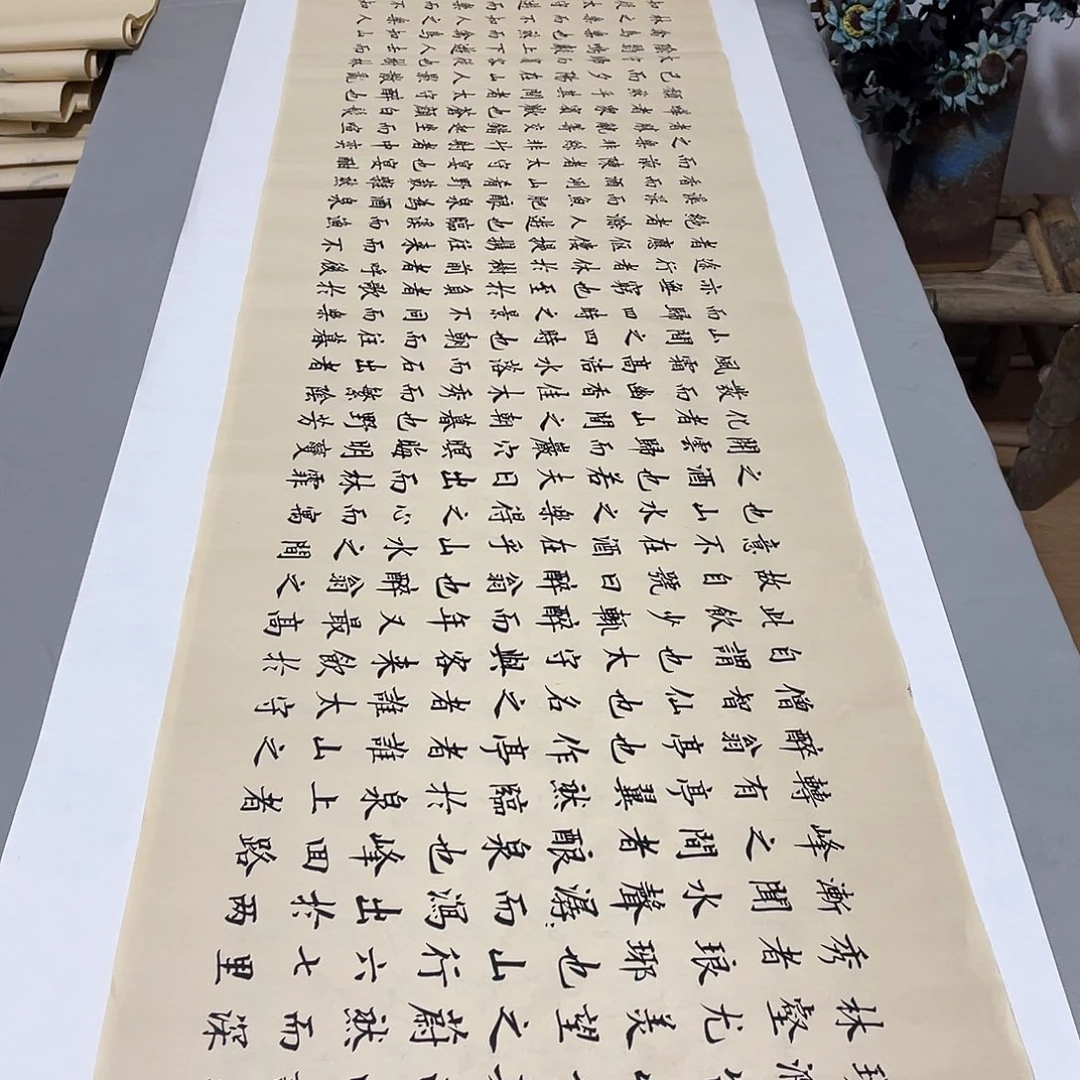 林壑尤美望之蔚然而深
秀者琅琊也山行六七里
漸聞水聲潺:而瀉出於兩
峰之間者釀泉也峰回路
轉有亭翼然臨於泉上者
醉翁亭也作亭者誰山之
僧智仙也名之者誰太守
自謂也太守與客來飲於
此飲少輒醉而年又最高
故自號曰醉翁也醉翁之
意不在酒在乎山水之間
也山水之樂得之心而寓
之酒也若夫日出而林霏
開雲歸而巖穴暝晦明變
化者山間之朝暮也野芳
發而幽香佳木秀而繁陰
風霜高潔水落而石出者
山間之四時也朝而往暮
而歸四時之景不同而樂
亦無窮也至於負者歌於
途行者休於樹前者呼後
者應傴僂提攜往來而不
絕者滁人遊也臨溪而漁
溪深而魚肥釀泉為酒泉
香而酒洌山肴野蔌雜然
而前陳者太守宴也宴酣
之樂非絲非竹射者中弈
者勝觥籌交錯起坐而諠
譁者眾賓歡也蒼顏白髮
頹然其間者太守醉也
已而夕陽在山人影散亂
太守歸而賓客從也樹林
陰翳鳴聲上下遊人去而
禽鳥樂也然而禽鳥知山
林之樂而不知人之樂人